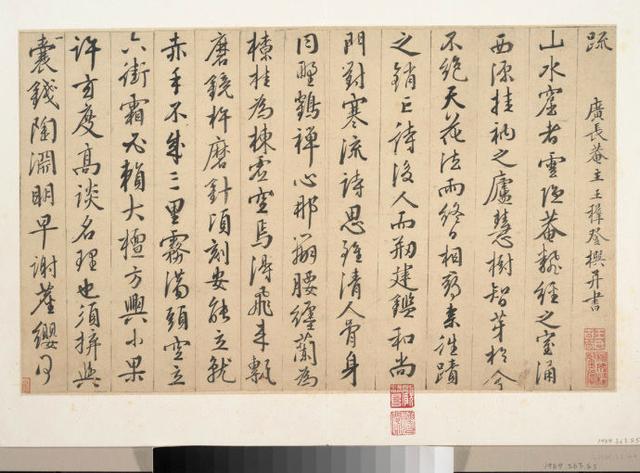 疏
廣長菴主王穉登撰并書
山水窟者雲隱菴經之室涌
西挂衲之廬慧樹智芽於今
不絕天花法雨終日相往蹟
之銷亡後人而剏建鑑和尚
門對寒流詩思雖清人骨身
同野鶴禪心那腰纏蘭為
橑桂為棟空焉得飛來甎
磨鏡杵磨針頃刻安能立就
赤手不成三里霧滿頭空立
六街霜必賴大檀方興小果
許玄度高談名理也須拚與
囊錢陶淵明早謝塵纓何